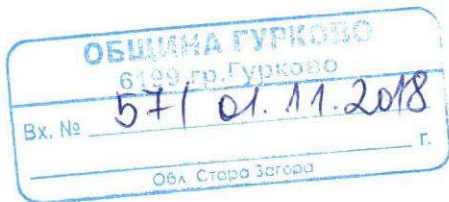 ОБЩИНА ГУРКОВО
6199 гр. Гурково
Вх. № 57/ 01.11.2018
г.
Обл. Стара Загора